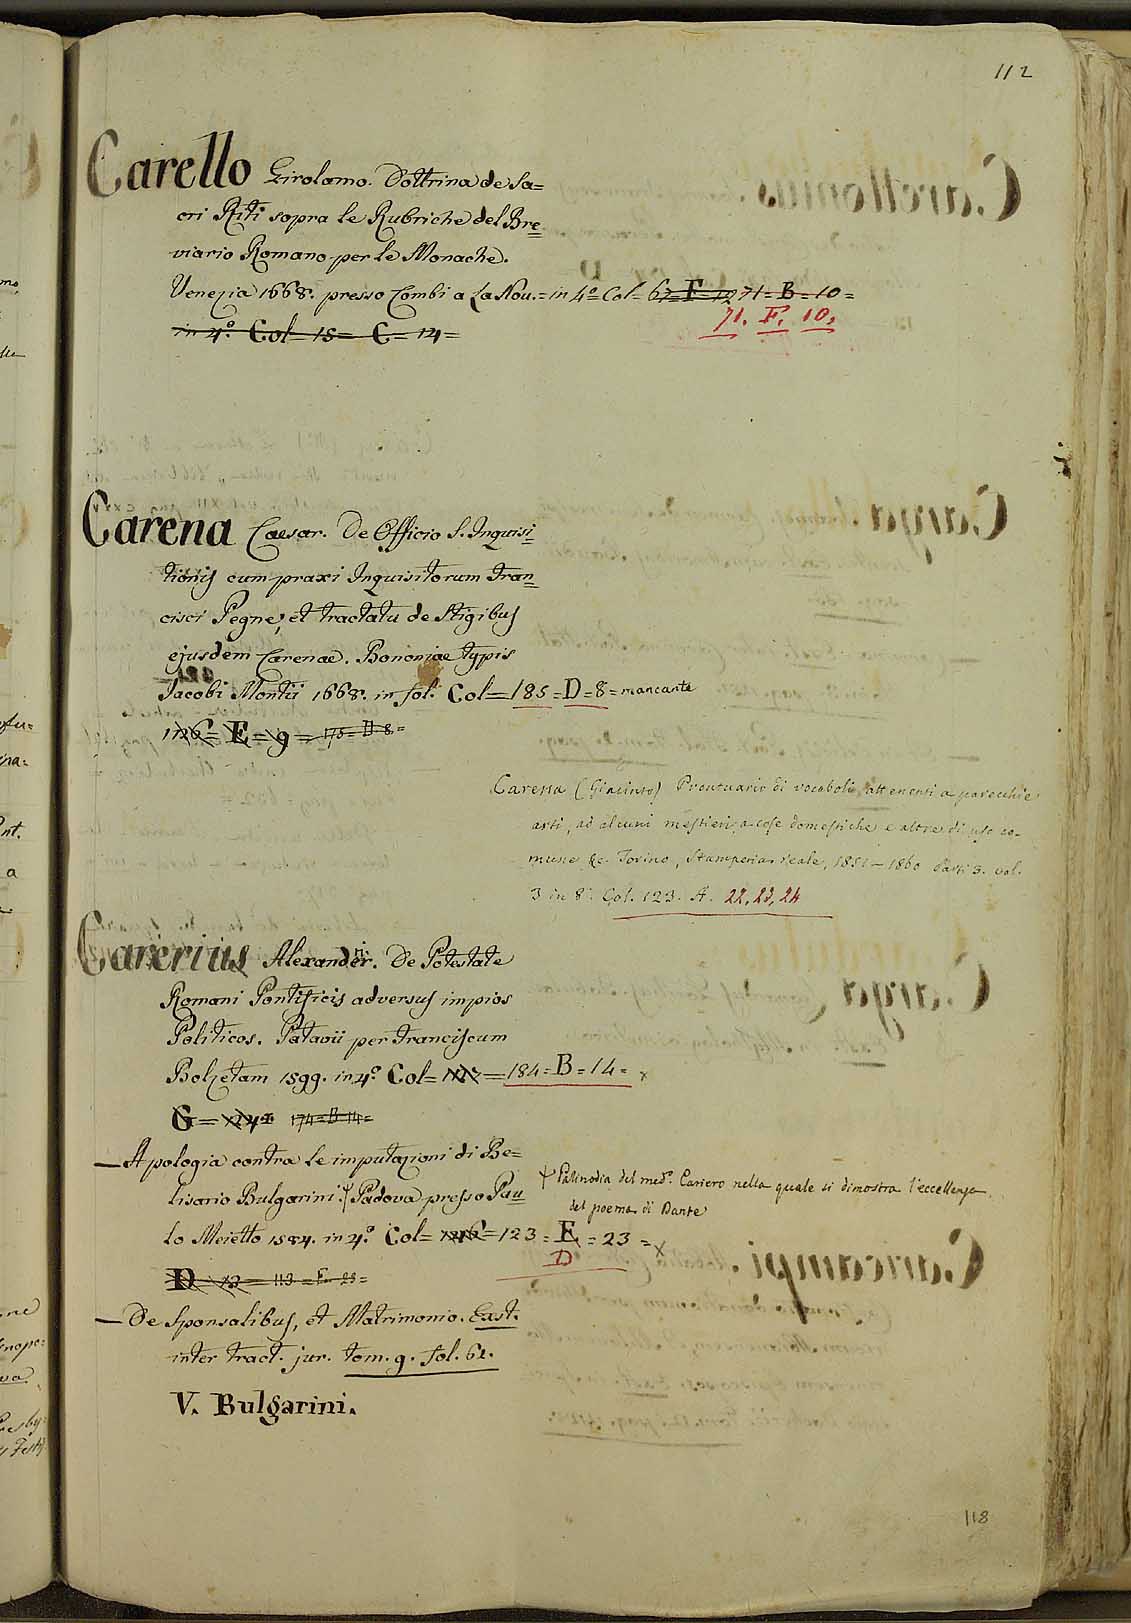 112
Carello Girolamo. Dottrina de Sa=
cri Riti sopra le Rubriche del Bre=
viario Romano per le Monache.
Venezia 1668. presso Combi a La Nou. = in 4º Col= 67= F= 12 71= B= 10=
71. F. 10,
in 4º. Col= 15= C= 14=
Carena Caesar. De Officio S. Inquisi=
tionis cum praxi Inquisitorum Fran=
cisci Pegne, et tractatu de Strigibus
ejusdem Carenae. Bononiae typis
Jacobi Montii 1668. in fol. Col= 185= D= 8= mancante
126= E= 9= 175= D 8=
Carena (Giacinto) Prontuario di vocaboli attenenti a parecchie
arti, ad alcuni mestieri, a cose domestiche e altre di uso co-
mune &c. Torino, Stamperia Reale, 1851-1860 Parti 3. vol.
3 in 8º. Col. 123. A. 22, 23, 24
Carerius Alexander. De Potestate
Romani Pontificis adversus impios
Politicos. Patavii per Franciscum
Bolzetam 1599. in 4º. Col= = 184= B= 14= x
G= 174= B 14=
— Apologia contra le imputazioni di Be=
lisario Bulgarini Padova presso Pau=
Palinodia del medº. Cariero nella quale si dimostra l'eccellenza
del poema di Dante
lo Meietto 1584. in 4º. Col= 146= 123= E= 23= x
D
D= 12= 113= E= 23=
— De Sponsalibus, et Matrimonio. Exst.
inter tract. jur. tom. 9. fol. 61.
V. Bulgarini.
118